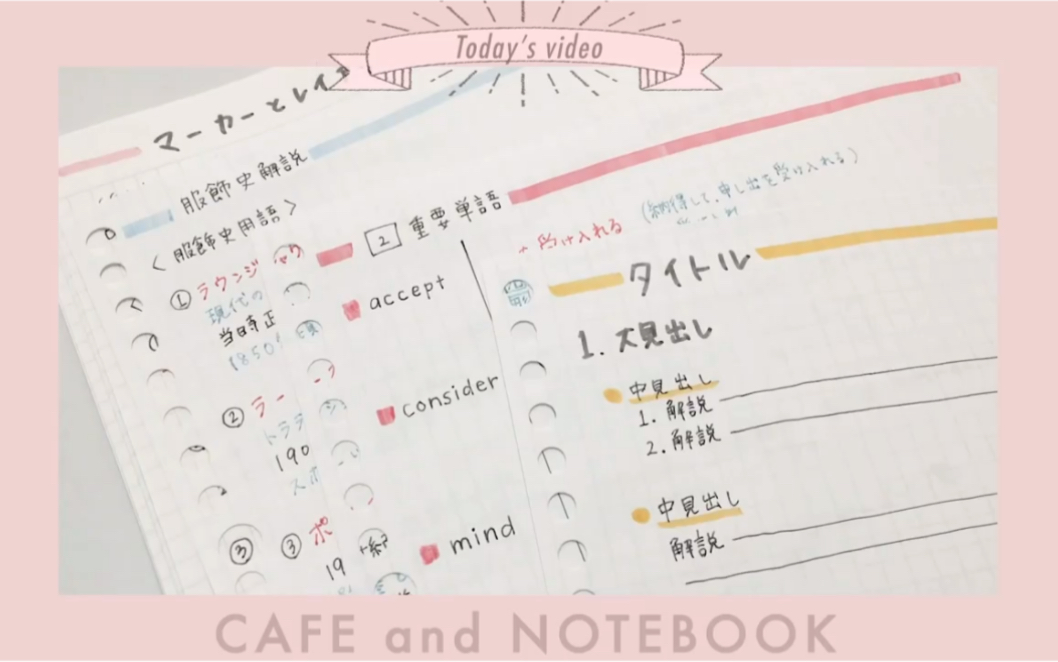 Today's video
マーカーとレイ
服飾史解説
＜服飾史用語＞
① ラウンジ
現代の
当時正
1850
② ラー
トララ
190
スポ
③
③ ポ
19
2 重要単語
accept
consider
mind
受け入れる
(納得して、申し出を受け入れる)
タイトル
1. 大見出し
中見出し
1. 解説
2. 解説
中見出し
解説
CAFE and NOTEBOOK